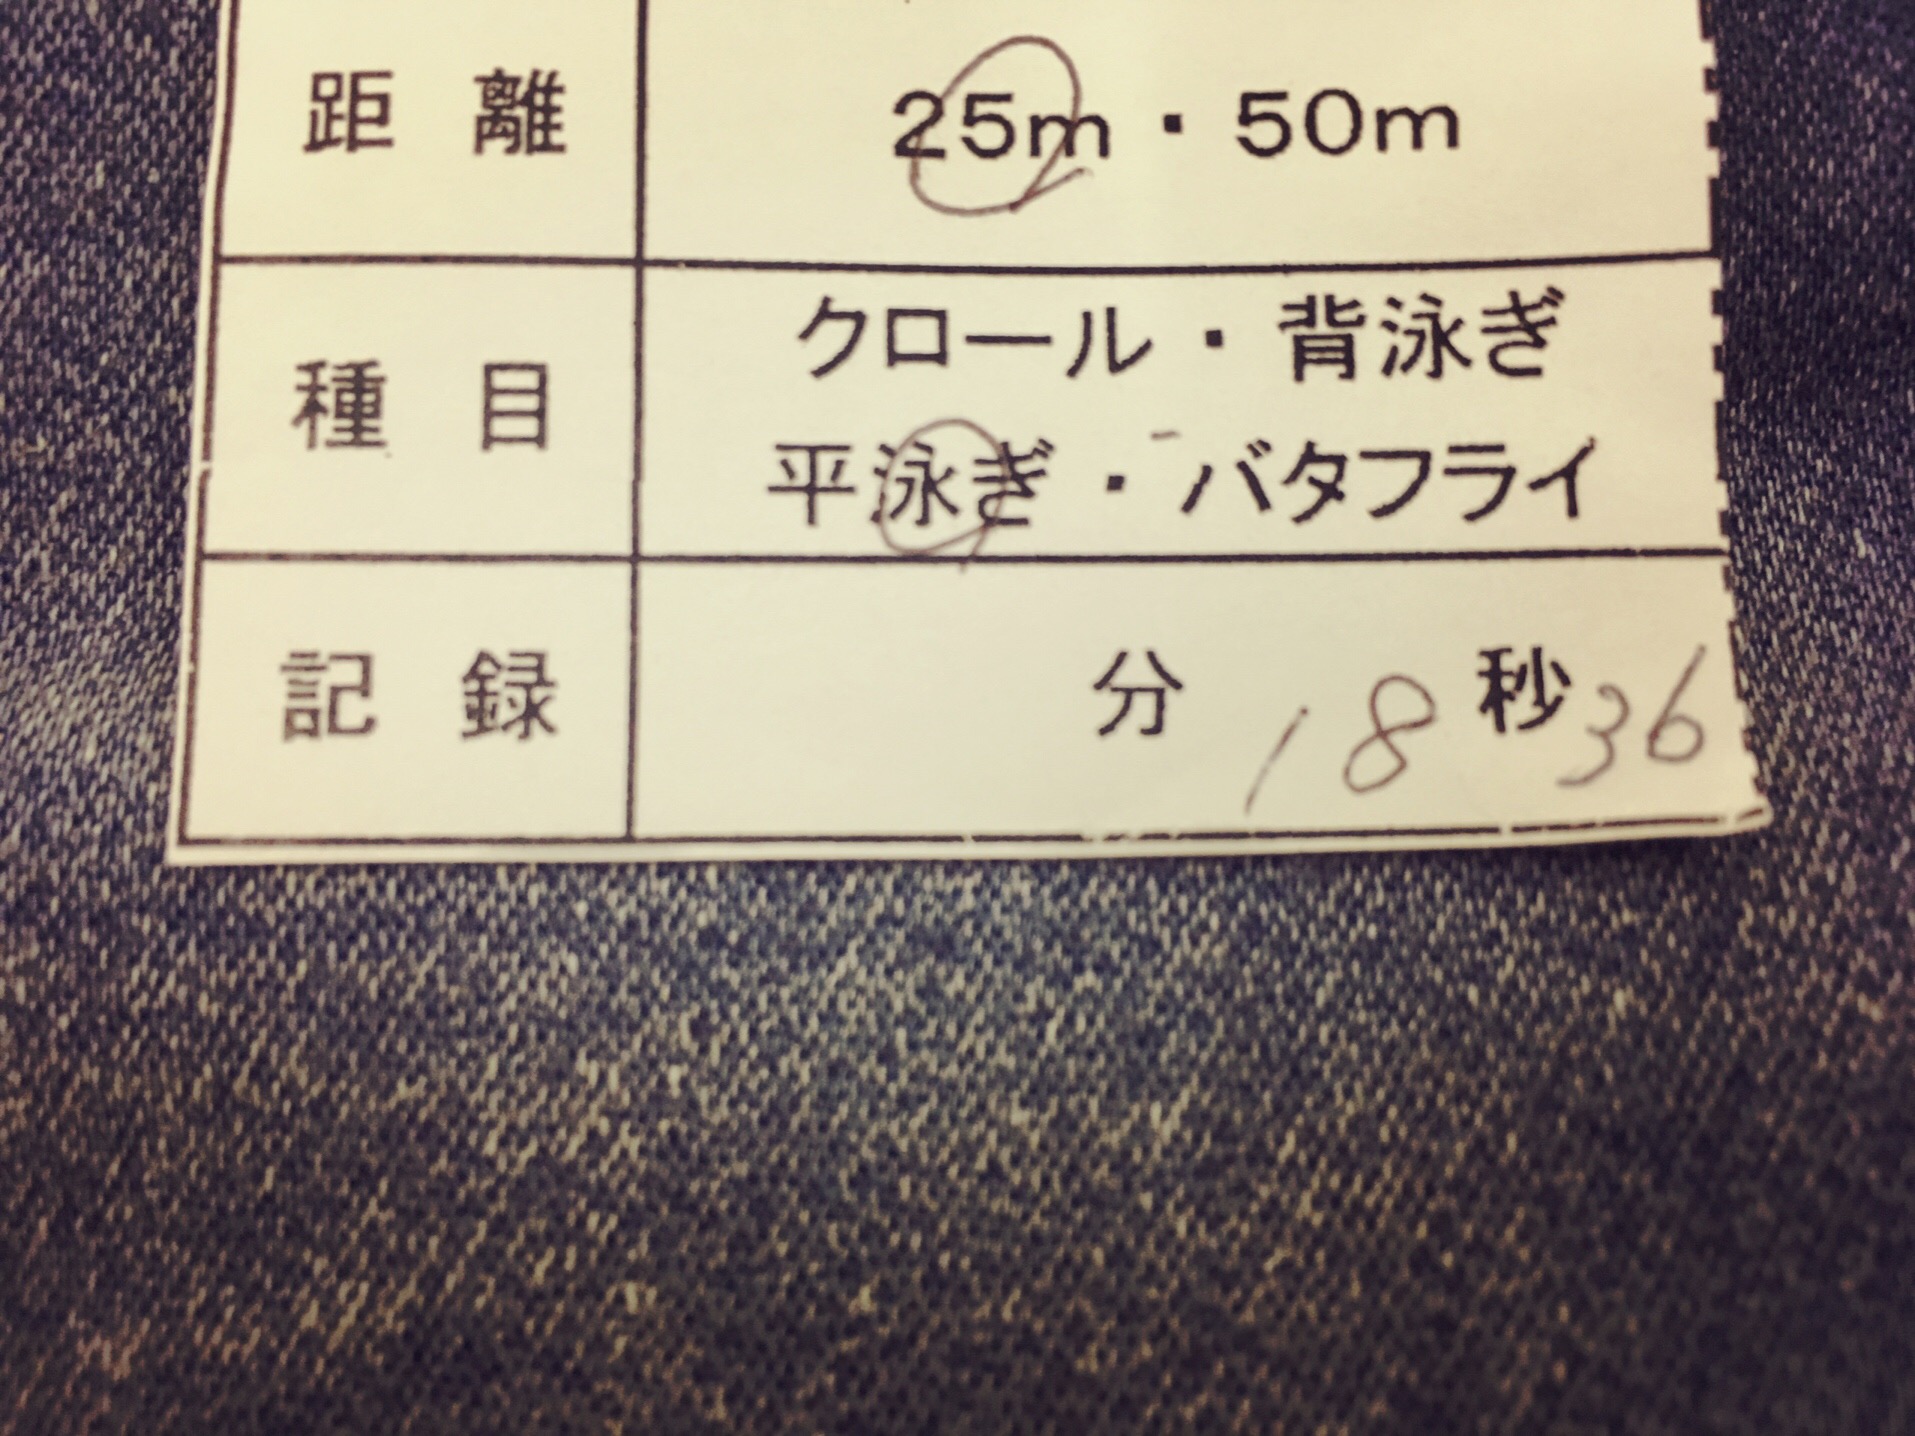 距離 25m・50m
種目 クロール・背泳ぎ
平泳ぎ・バタフライ
記録 分 18 秒 36